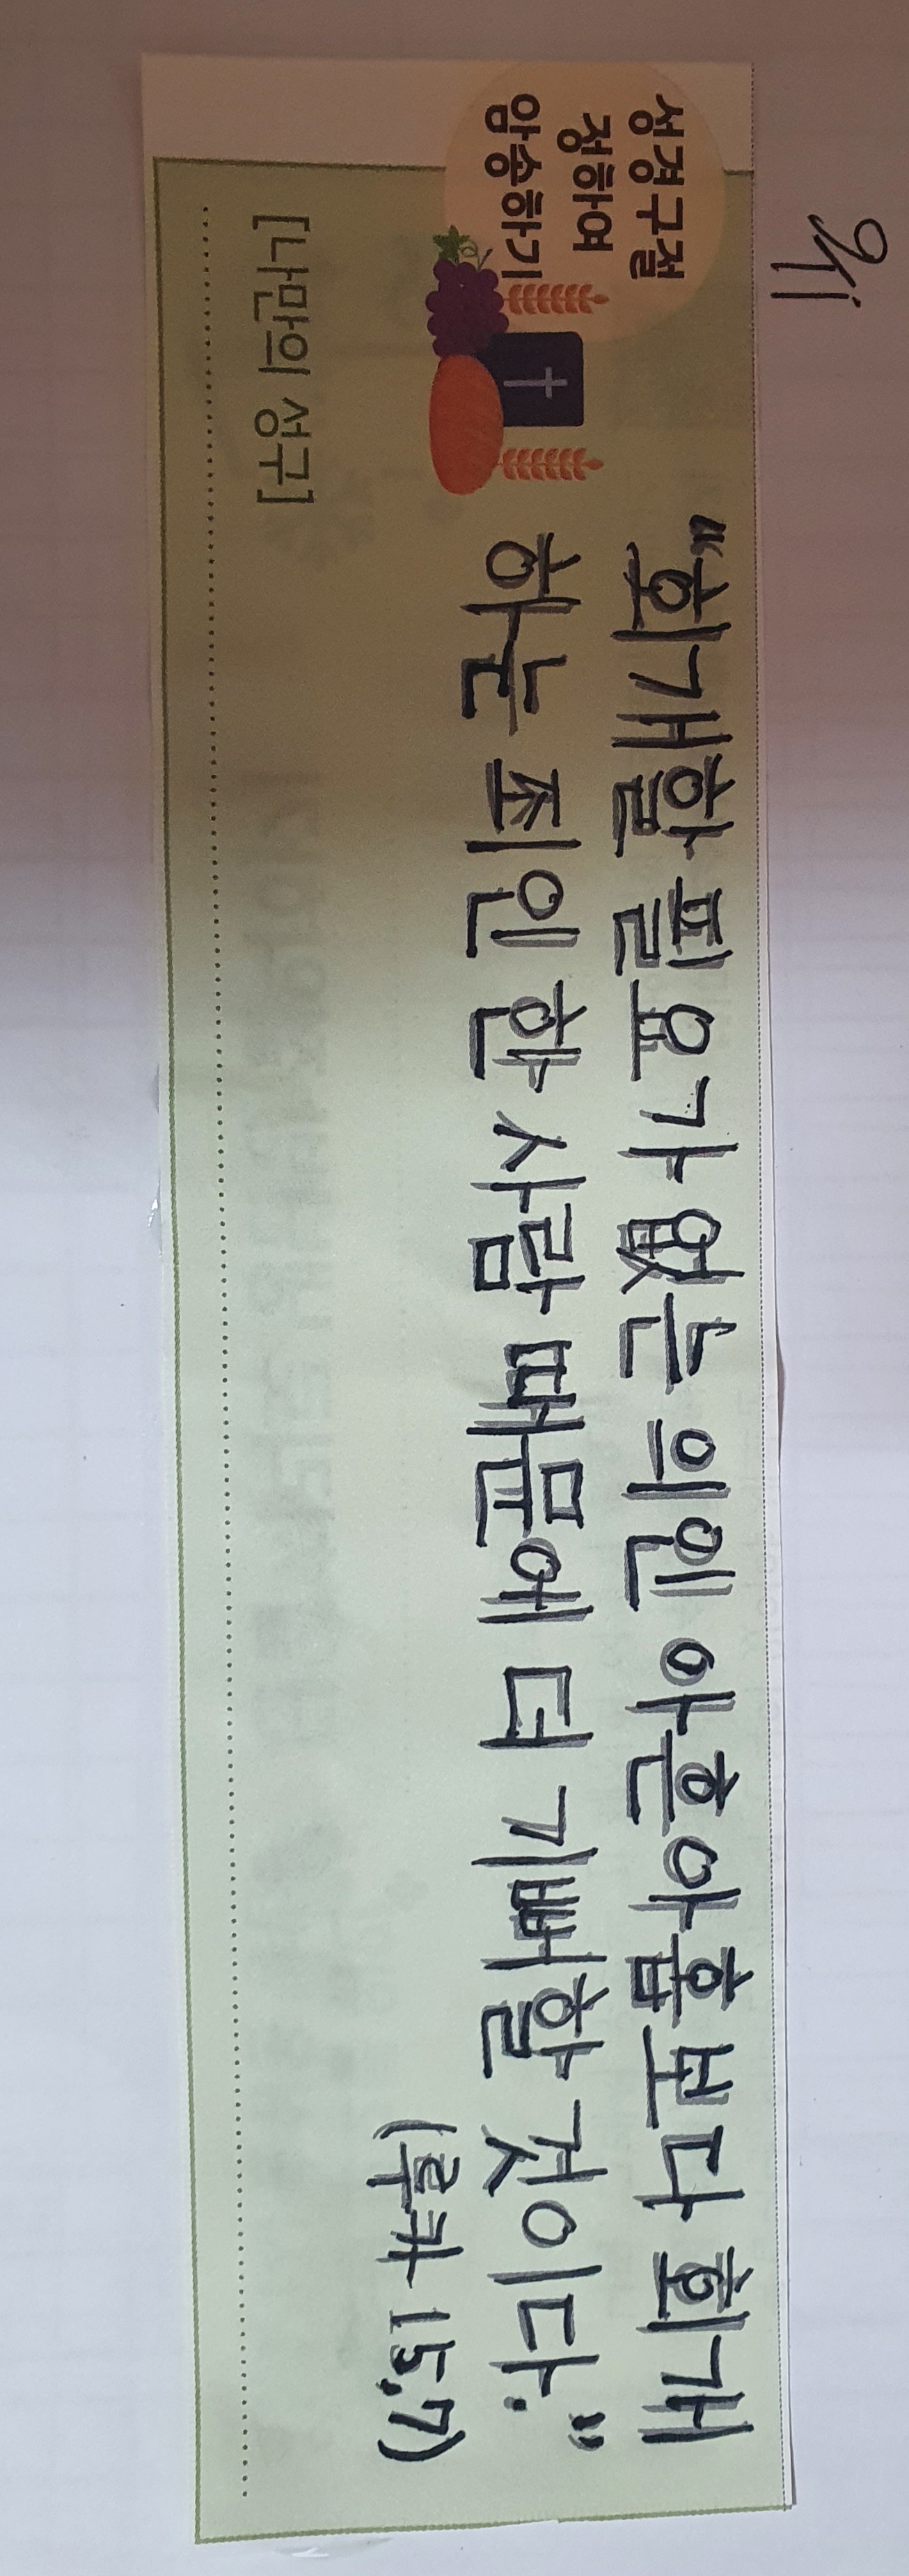 위
성경구절
정하여
암송하기
"회개할 필요가 없는 의인 아흔아홉보다 회개
하는 죄인 한 사람 때문에 더 기뻐할 것이다."
(루카 15,7)
[나만의 성구]